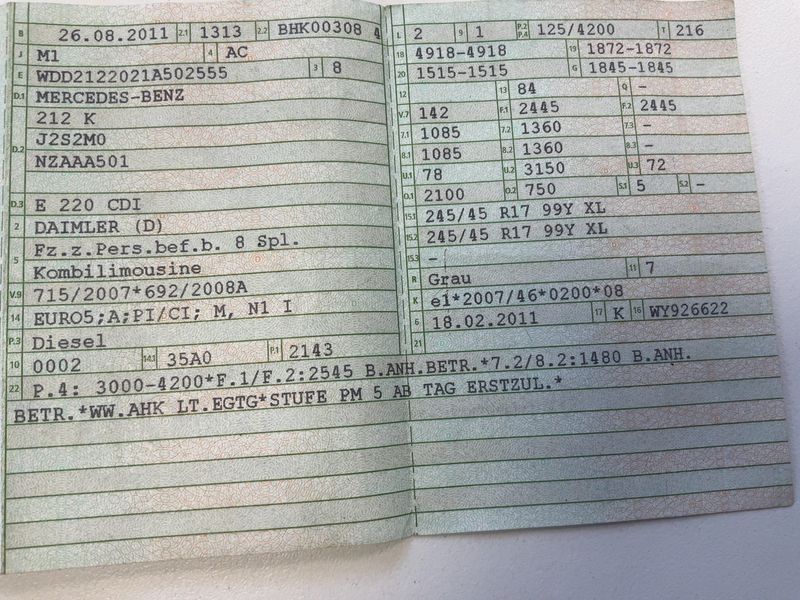 B 26.08.2011 2.1 1313 2.2 BHK00308 4
J M1 4 AC
E WDD2122021A502555 3 8
D.1 MERCEDES-BENZ
212 K
D.2 J2S2M0
NZAAA501
D.3 E 220 CDI
2 DAIMLER (D)
5 Fz.z.Pers.bef.b. 8 Spl.
Kombilimousine
V.9 715/2007*692/2008A
14 EURO5;A;PI/CI; M, N1 I
P.3 Diesel
10 0002 14.1 35A0 P.1 2143
L 2 9 1 P.2 P.4 125/4200 T 216
18 4918-4918 19 1872-1872
20 1515-1515 G 1845-1845
12 13 84 Q -
V.7 142 F.1 2445 F.2 2445
7.1 1085 7.2 1360 7.3 -
8.1 1085 8.2 1360 8.3 -
U.1 78 U.2 3150 U.3 72
O.1 2100 O.2 750 S.1 5 S.2 -
15.1 245/45 R17 99Y XL
15.2 245/45 R17 99Y XL
15.3 -
R Grau 11 7
K e1*2007/46*0200*08
6 18.02.2011 17 K 16 WY926622
21
22 P.4: 3000-4200*F.1/F.2:2545 B.ANH.BETR.*7.2/8.2:1480 B.ANH.
BETR.*WW.AHK LT.EGTG*STUFE PM 5 AB TAG ERSTZUL.*